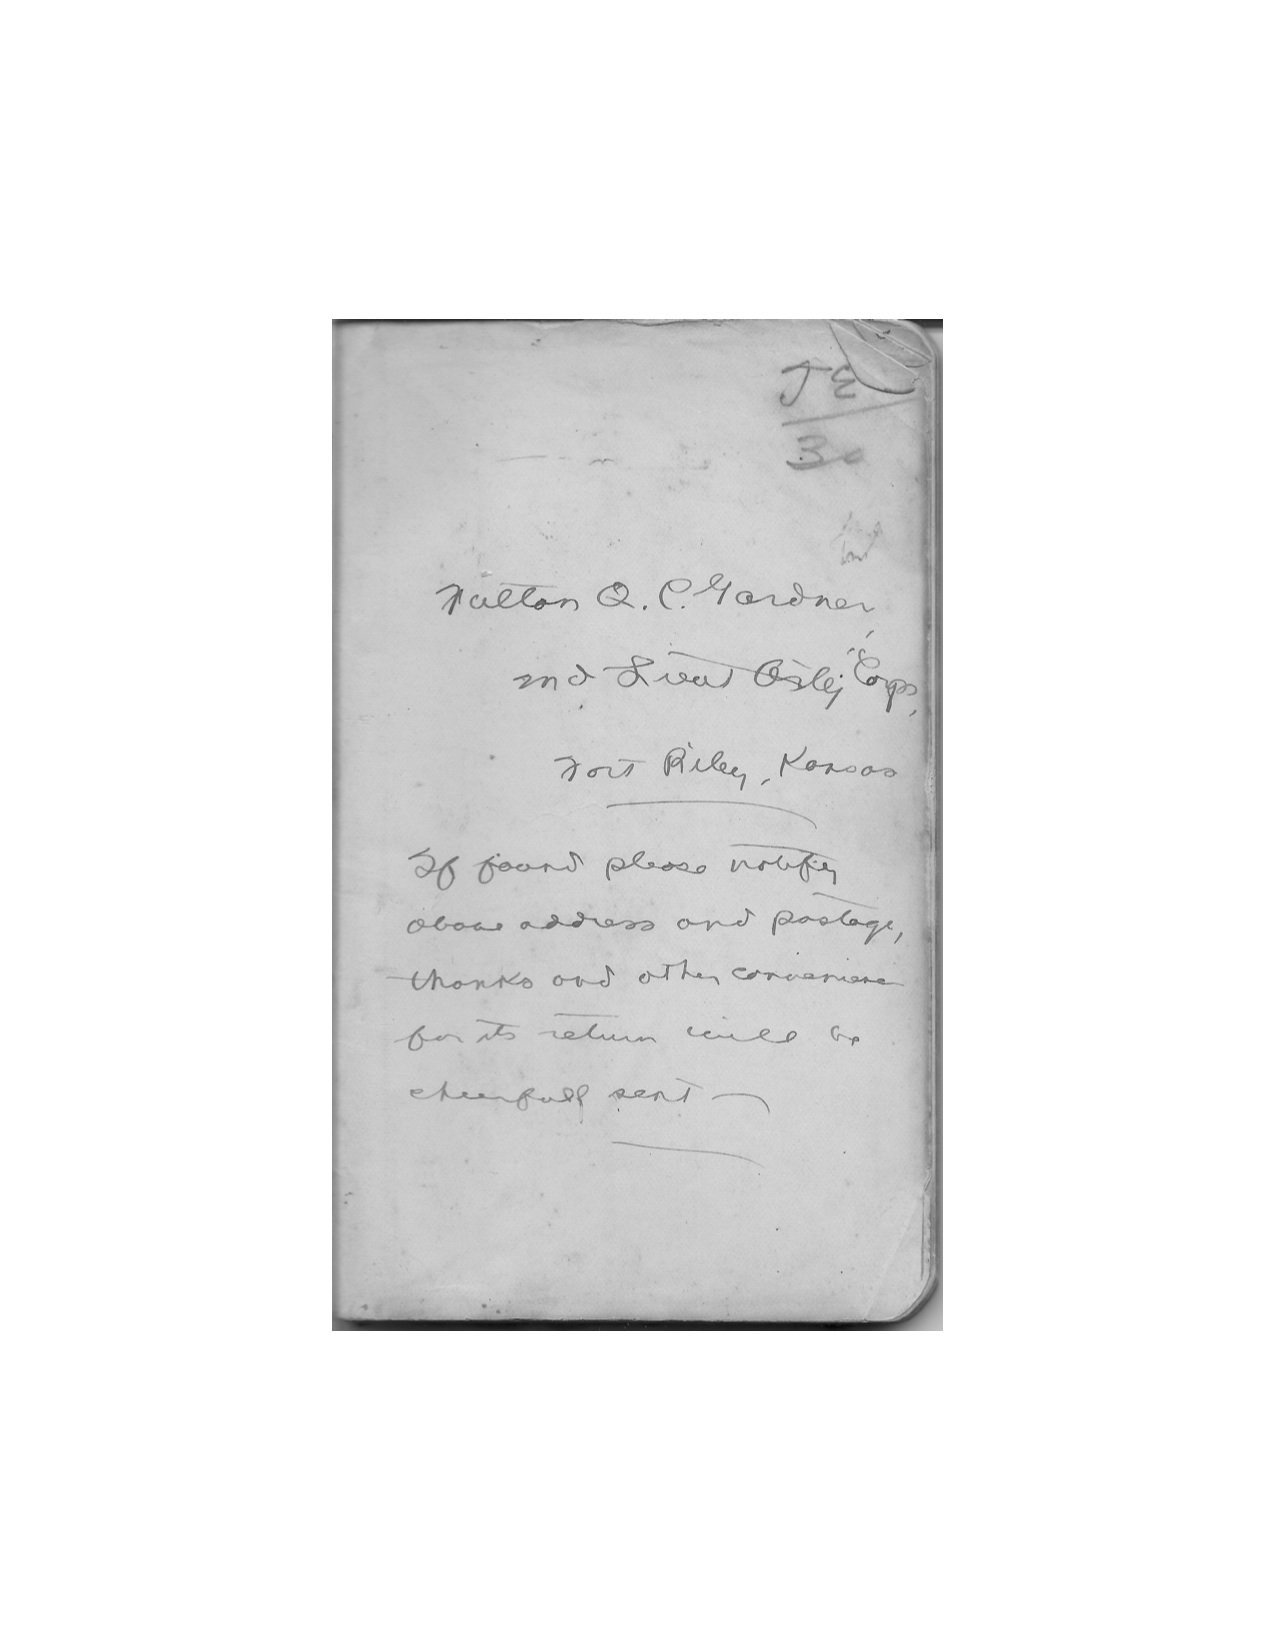 JE
30
Fulton Q. C. Gardner,
2nd Lieut Arty Corps,
Fort Riley, Kansas
If found please notify
above address and postage,
thanks and other convenience
for its return will be
cheerfull sent —